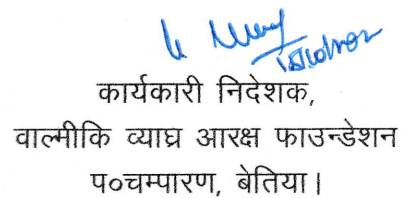 कार्यकारी निदेशक,
वाल्मीकि व्याघ्र आरक्ष फाउन्डेशन
प०चम्पारण, बेतिया।